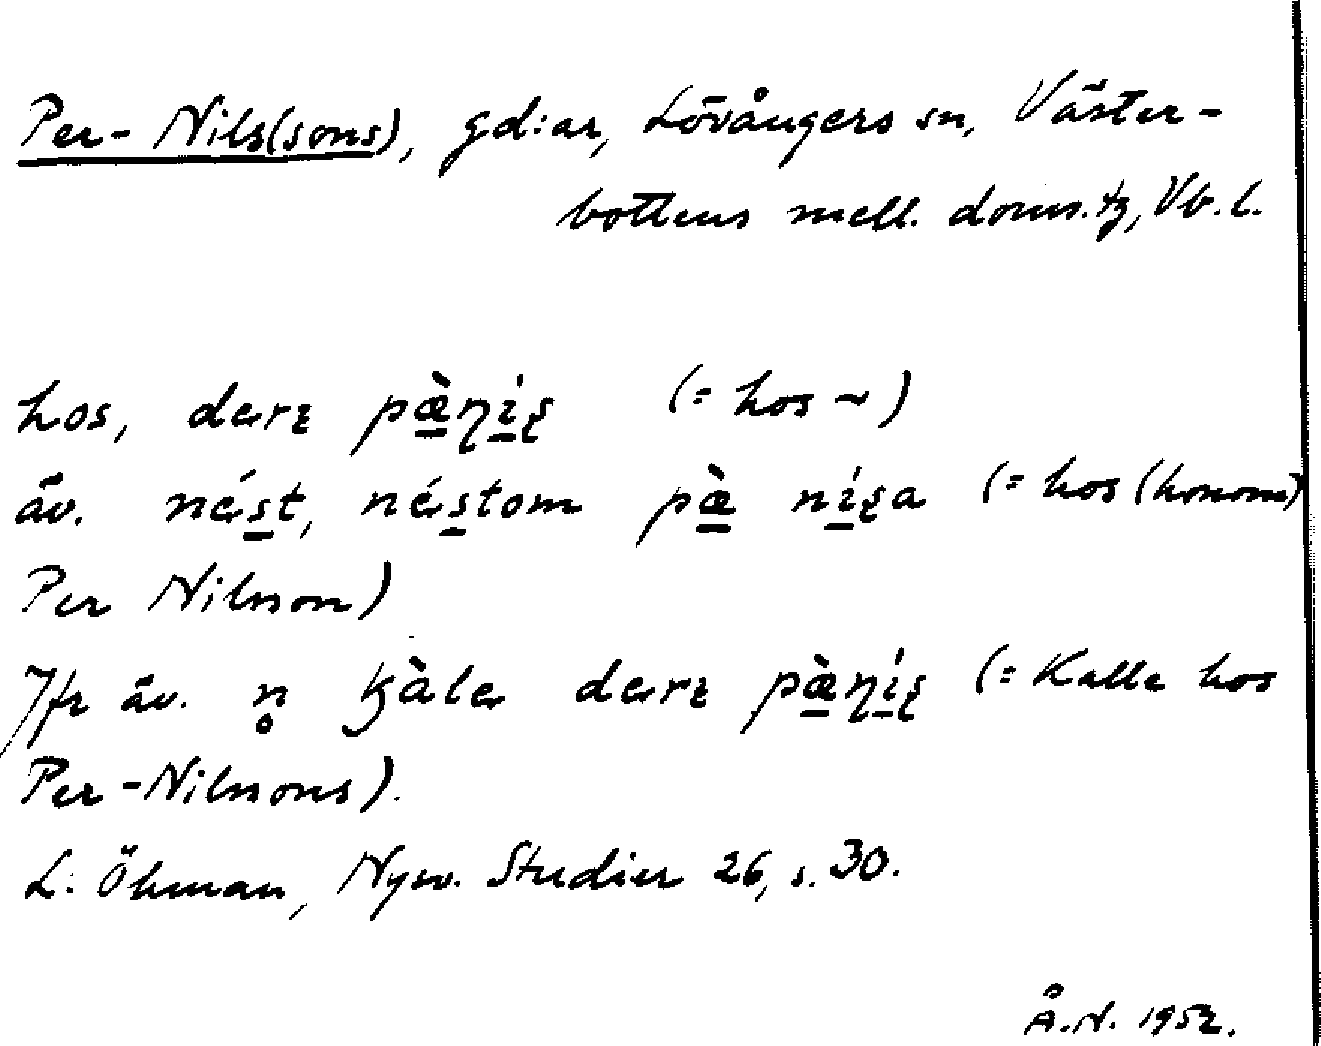 Per-Nils(sons), gd:ar, Lövångers sn, Väster-
bottens mell. doms.tg, Vb. l.
hos, derɛ pæ̀ɳís̨ (= hos ~)
äv. nést, néstom pæ̀ nís̨a (= hos (honom)
Per Nilsson)
Jfr äv. n̥ kàle derɛ pæ̀ɳís̨ (= Kalle hos
Per-Nilssons).
L. Öhman, Nysv. Studier 26, s. 30.
Å.N. 1952.